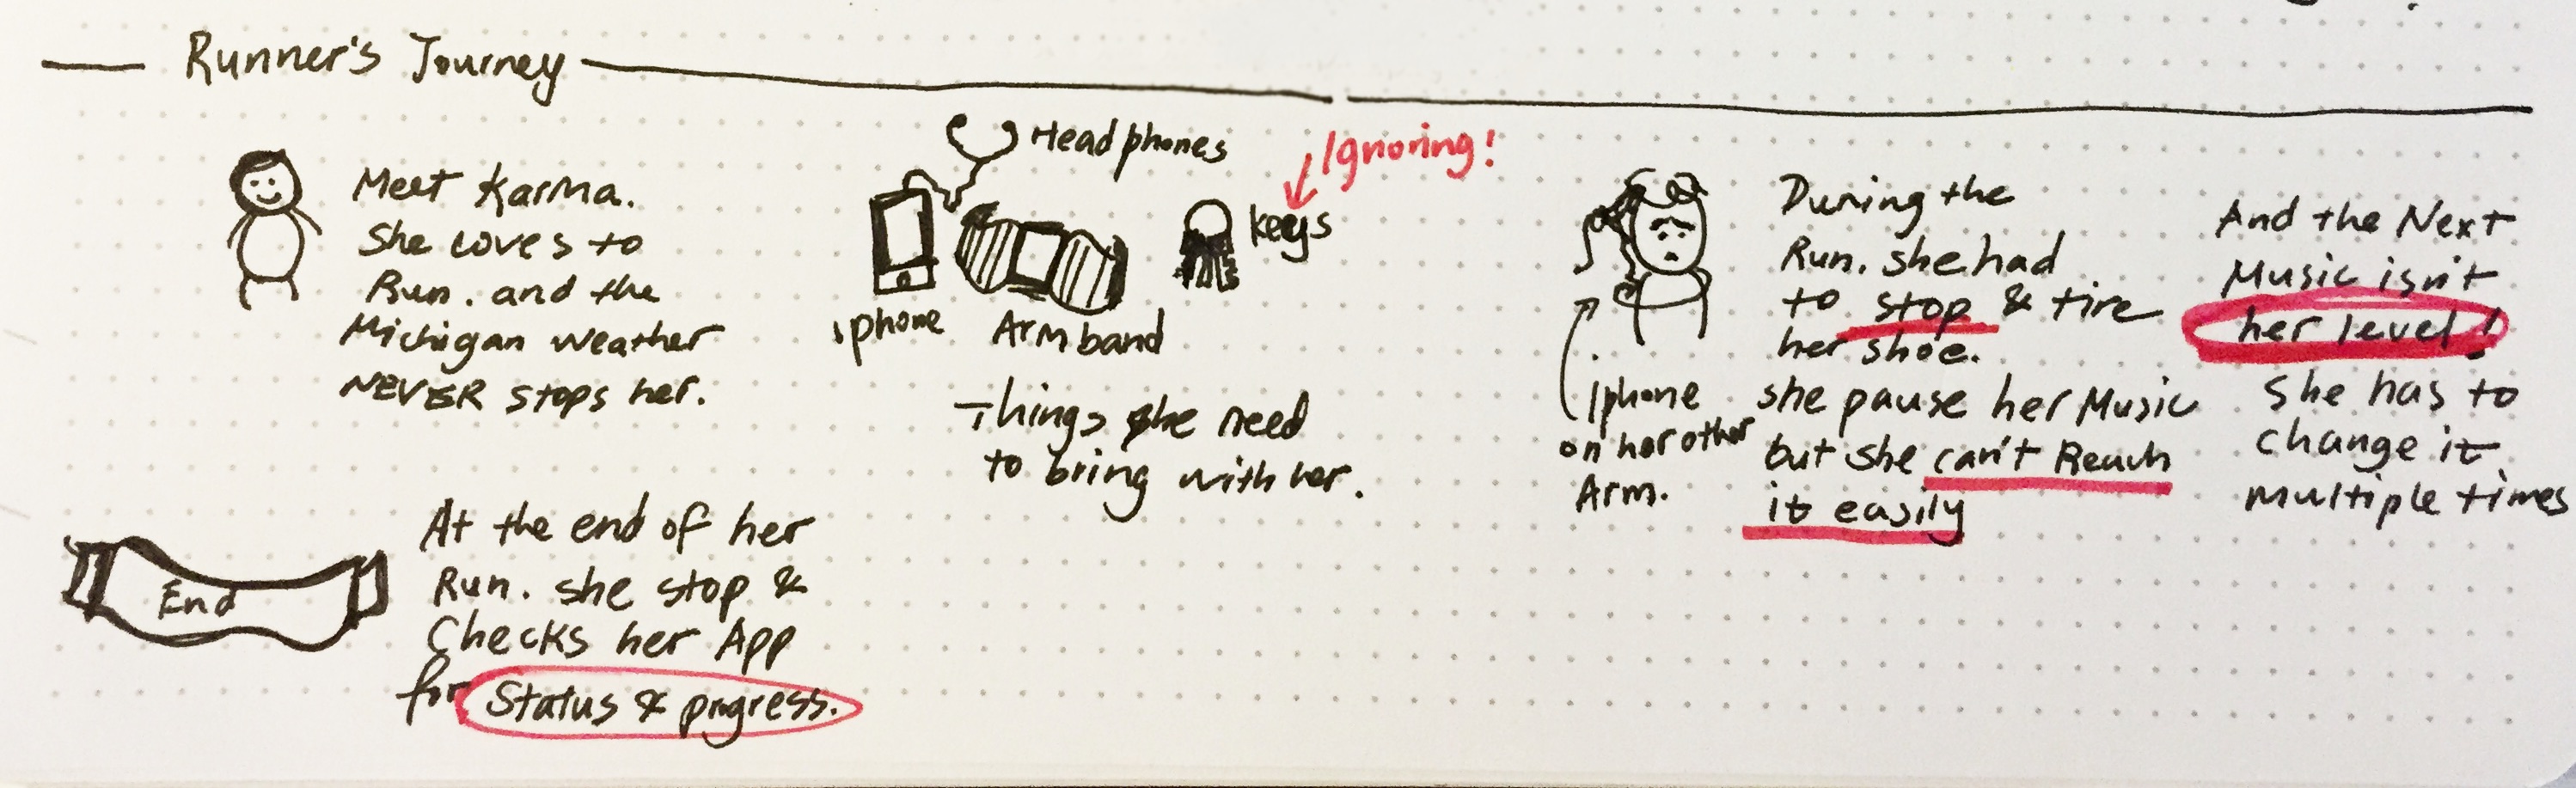 Runner's Journey
Meet Karma.
She loves to
Run. and the
Michigan weather
NEVER stops her.
Headphones
Ignoring!
keys
iphone
Armband
Things she need
to bring with her.
Iphone
on her other
Arm.
During the
Run. she had
to stop & tire
her shoe.
she pause her Music
but she can't Reach
it easily
And the Next
Music isn't
her level!
She has to
change it
multiple times
End
At the end of her
Run. she stop &
Checks her App
for Status & progress.